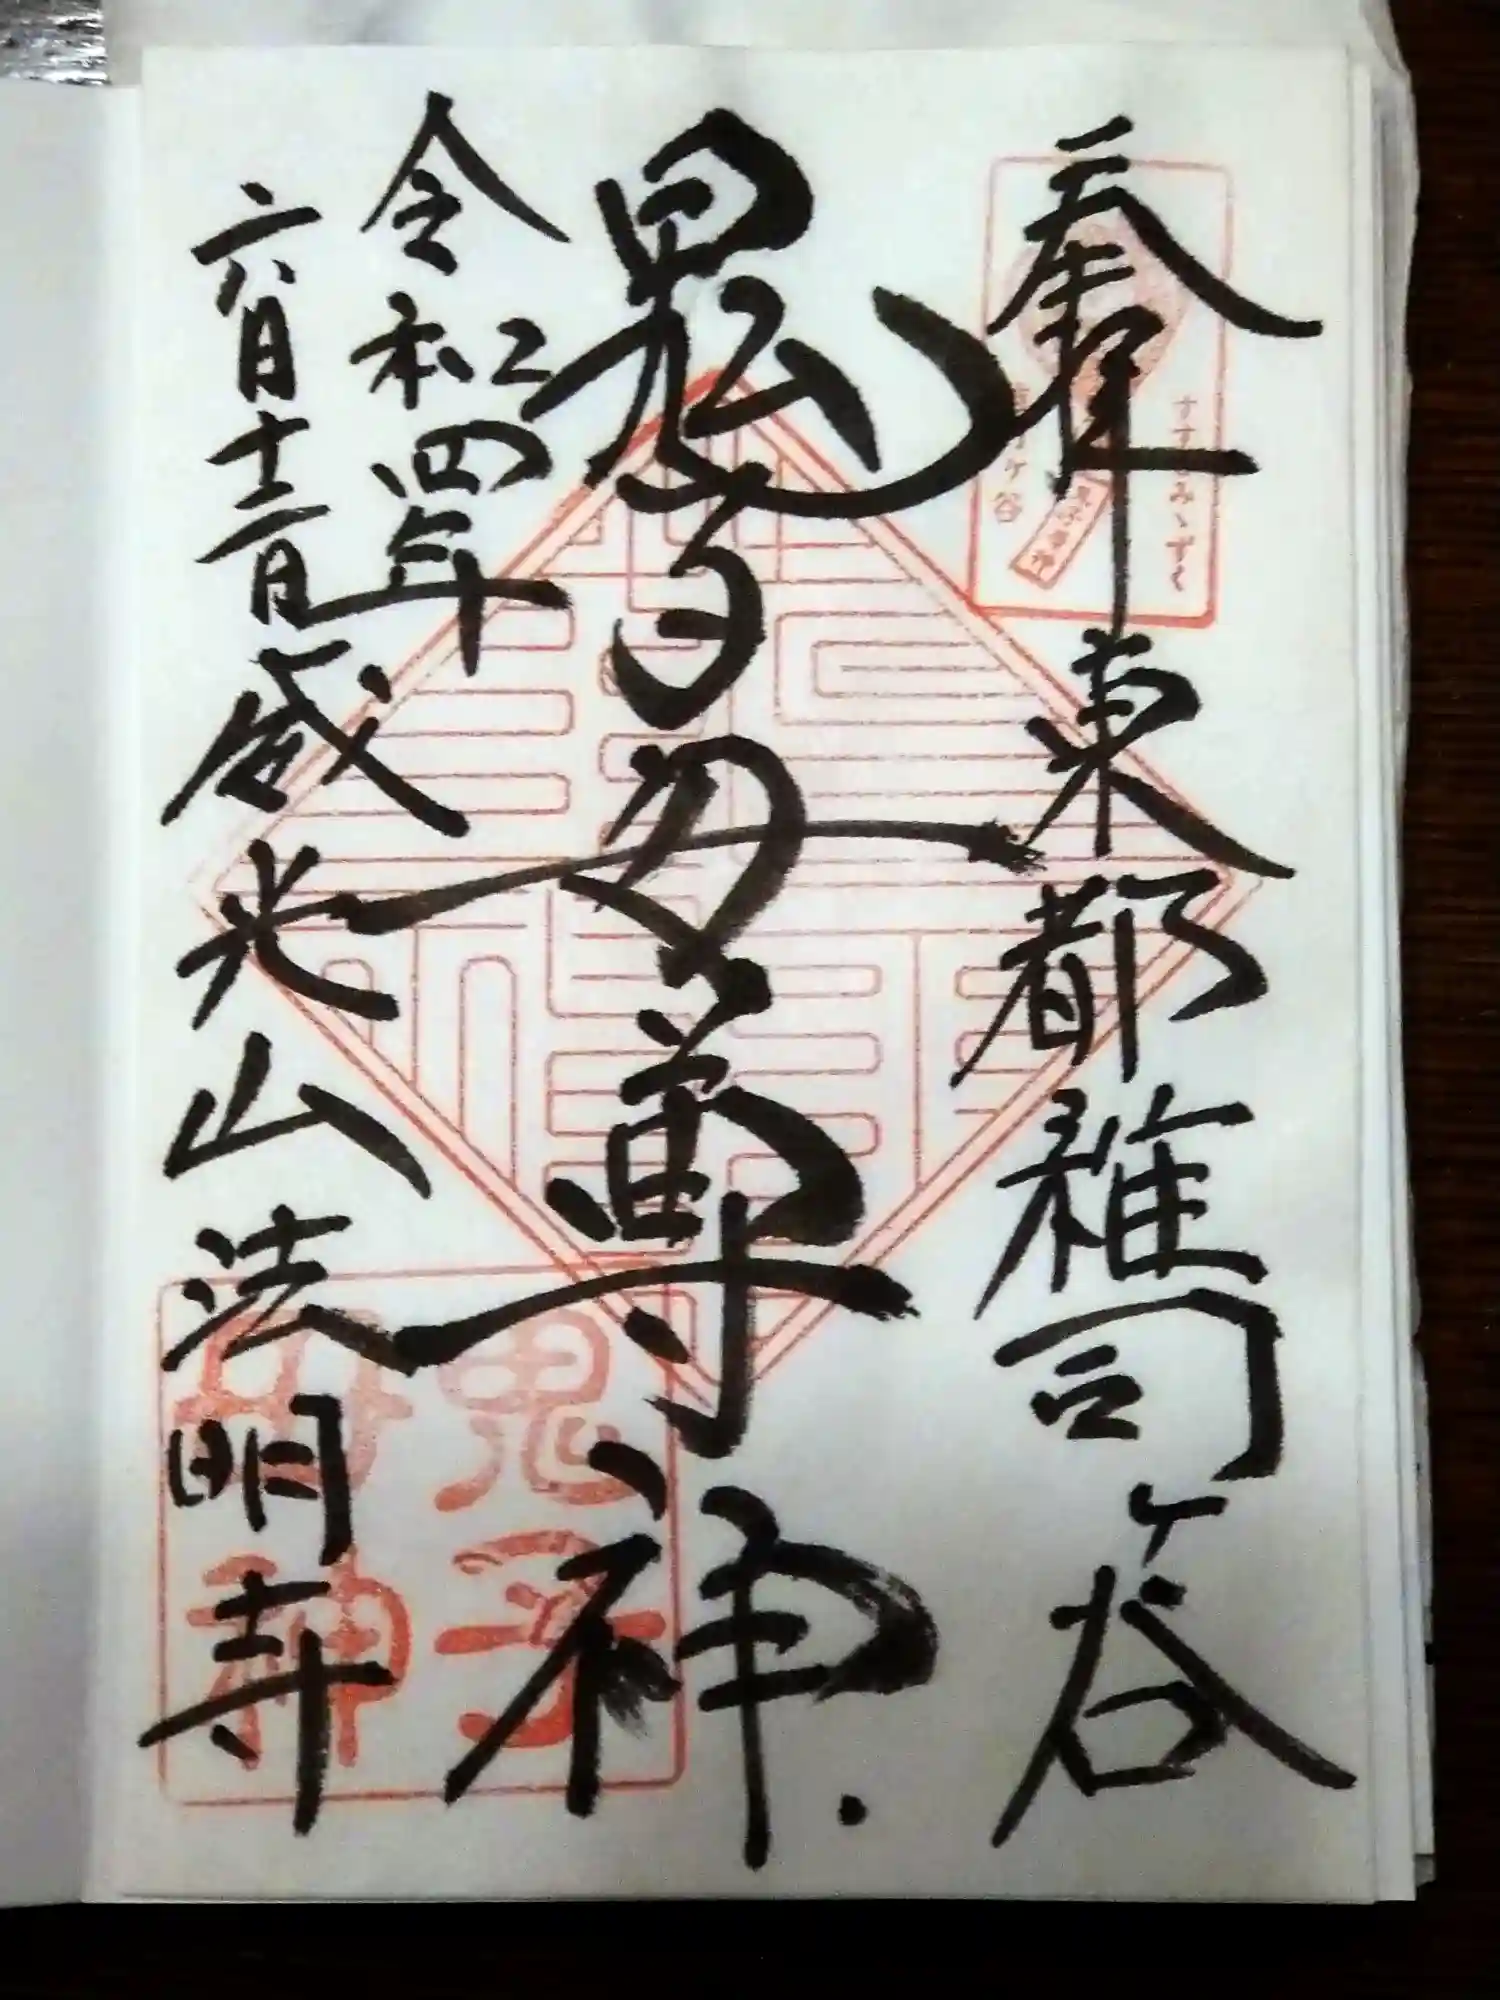 奉拝
東都雑司ヶ谷
鬼子母尊神
令和四年
六月十二日
威光山法明寺
すすきみゝずく
鬼子
母神